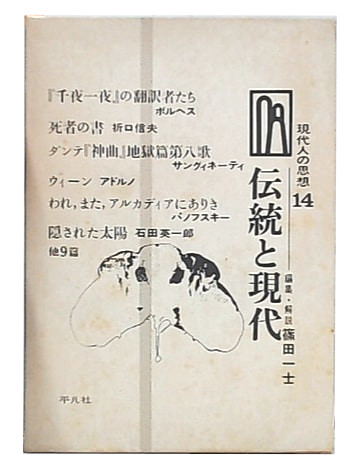 現代人の思想 14
伝統と現代
編集・解説 篠田一士
『千夜一夜』の翻訳者たち
ボルヘス
死者の書 折口信夫
ダンテ『神曲』地獄篇第八歌
サングィネーティ
ウィーン アドルノ
われ,また,アルカディアにありき
パノフスキー
隠された太陽 石田英一郎
他9篇
平凡社